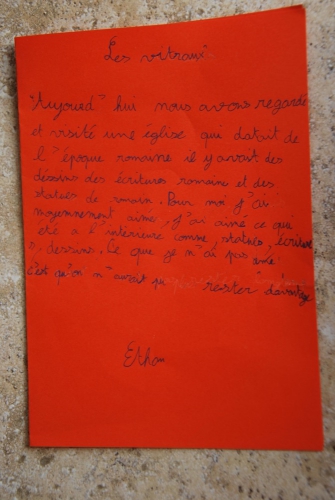 Les vitraux
"Aujoued" hui nous avons regardé
et visité une église qui datait de
l'époque romaine il y avait des
dessins des écritures romaine et des
statues de romain. Pour moi j'ai
moyennement aimé. J'ai aimé ce que
été a l'interieure comme, statues, écriture
dessins. Ce que je n'ai pas aimé
c'est qu'on n'aurait pu rester davantage
Ethan